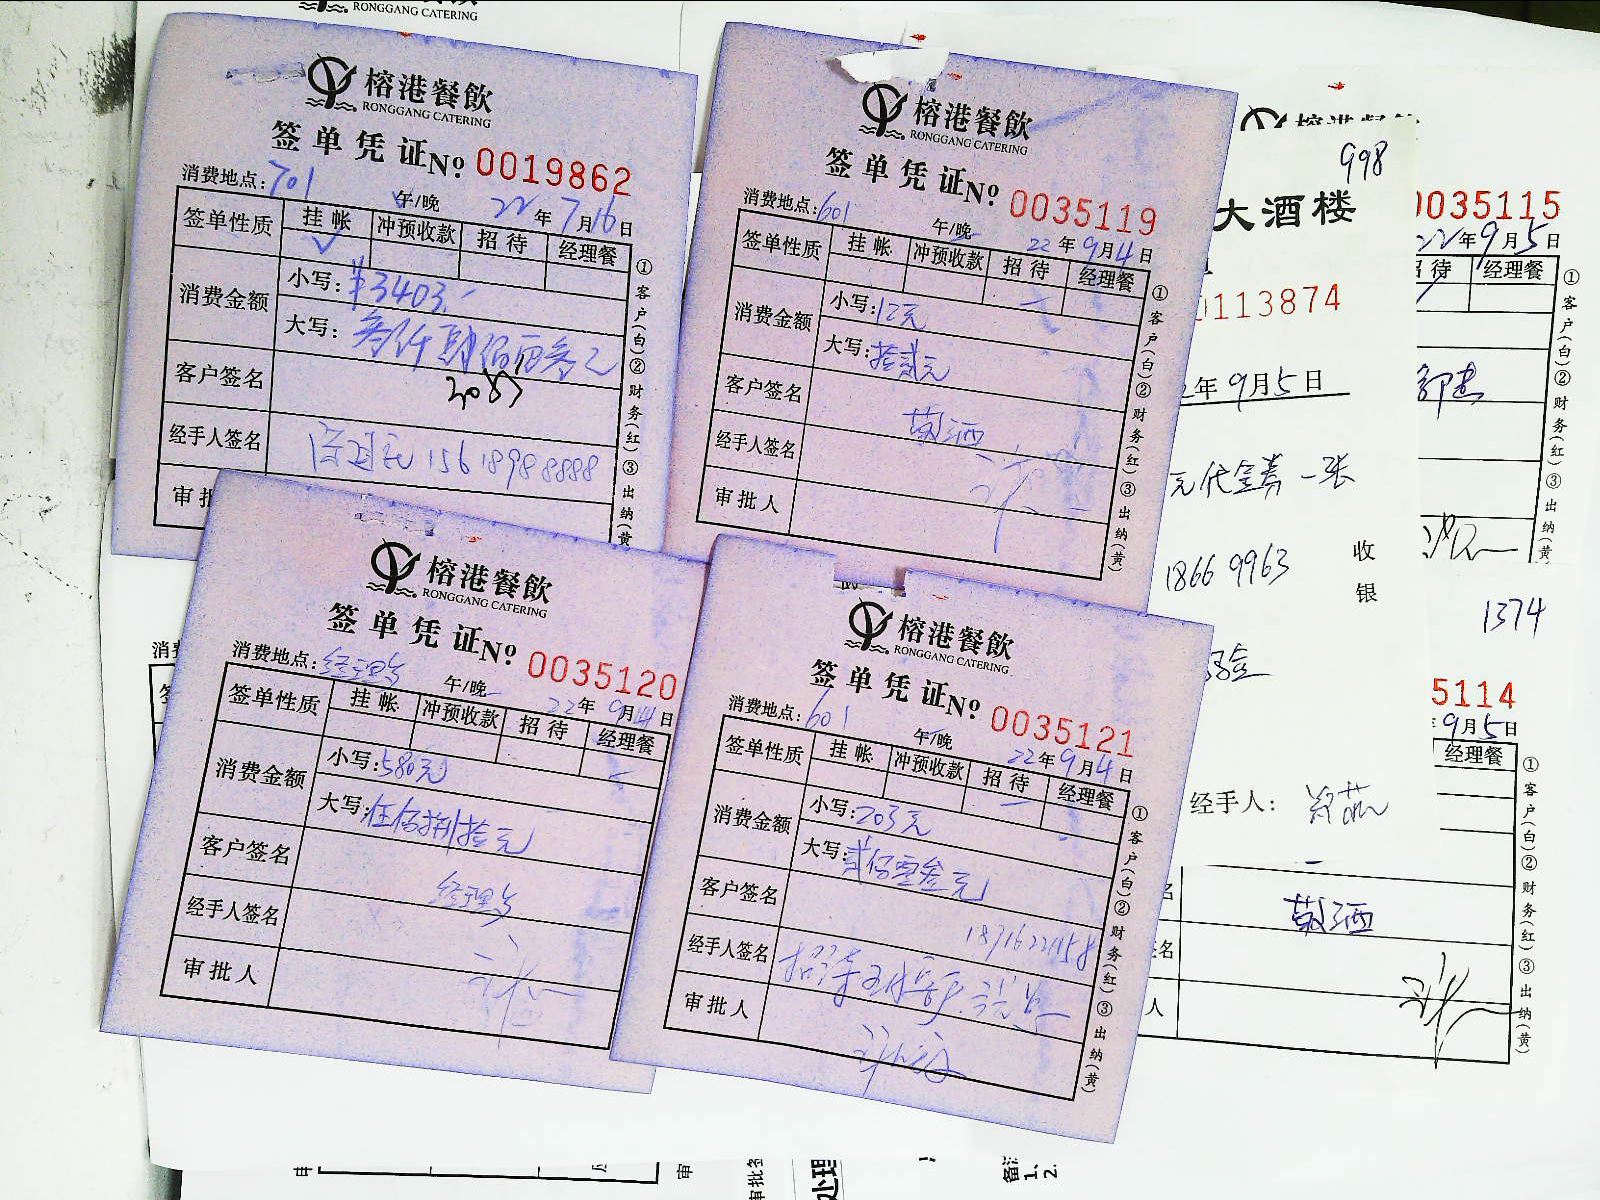 RONGGANG CATERING
榕港餐飲
RONGGANG CATERING
签单凭证No. 0019862
消费地点:701
午/晚 22年7月16日
签单性质 挂帐 冲预收款 招待 经理餐
消费金额 小写:¥3403.-
大写:叁仟肆佰零叁元
客户签名
经手人签名 15618988888
审批
①客户(白)②财务(红)③出纳(黄
榕港餐飲
RONGGANG CATERING
签单凭证No. 0035119
消费地点:601
午/晚 22年9月4日
签单性质 挂帐 冲预收款 招待 经理餐
消费金额 小写:12元
大写:拾贰元
客户签名
经手人签名
审批人
①客户(白)②财务(红)③出纳(黄)
榕港餐飲
RONGGANG CATERING
签单凭证No. 0035120
消费地点:经理餐
午/晚 22年9月4日
签单性质 挂帐 冲预收款 招待 经理餐
消费金额 小写:580元
大写:伍佰捌拾元
客户签名
经理餐
经手人签名
审批人
榕港餐飲
RONGGANG CATERING
签单凭证No. 0035121
消费地点:601
午/晚 22年9月4日
签单性质 挂帐 冲预收款 招待 经理餐
消费金额 小写:203元
大写:贰佰零叁元
客户签名
经手人签名
审批人
①客户(白)②财务(红)③出纳(黄)
998
大酒楼
0113874
年9月5日
元代金券一张
1866 9963
收银
经手人:
0035115
22年9月5日
招待 经理餐
①客户(白)②财务(红)③出纳(黄)
1374
5114
9月5日
经理餐
①客户(白)②财务(红)③出纳(黄)
处理
1.
2.